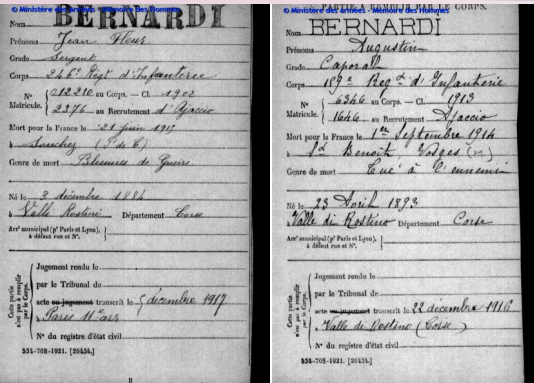 © Ministère des armées - Mémoire des Hommes
Nom BERNARDI
Prénoms Jean Fleur
Grade Sergent
Corps 246e Régt d'Infanterie
N° 012210 au Corps. — Cl. 1902
Matricule. 2376 au Recrutement d'Ajaccio
Mort pour la France le 21 juin 1915
à Souchez (P de C)
Genre de mort Blessures de Guerre
Né le 3 décembre 1884
à Valle Rostino Département Corse
Arr' municipal (p' Paris et Lyon), à défaut rue et N°.
Cette partie n'est pas à remplir par le Corps.
Jugement rendu le
par le Tribunal de
acte ou jugement transcrit le 5 décembre 1917
à Paris 11e arr
N° du registre d'état civil
534-708-1921. [26434.]
PARTIE A REMPLIR PAR LE CORPS.
© Ministère des armées - Mémoire des Hommes
Nom BERNARDI
Prénoms Augustin
Grade Caporal
Corps 189e Regt d'Infanterie
N° 6346 au Corps. — Cl. 1913
Matricule. 1646 au Recrutement Ajaccio
Mort pour la France le 1er Septembre 1914
à St Benoit Vosges
Genre de mort Tué à l'ennemi
Né le 23 Avril 1893
à Valle di Rostino Département Corse
Arr' municipal (p' Paris et Lyon), à défaut rue et N°.
Cette partie n'est pas à remplir par le Corps.
Jugement rendu le
par le Tribunal de
acte ou jugement transcrit le 22 décembre 1916
à Valle di Rostino (Corse)
N° du registre d'état civil
534-708-1921. [26434.]